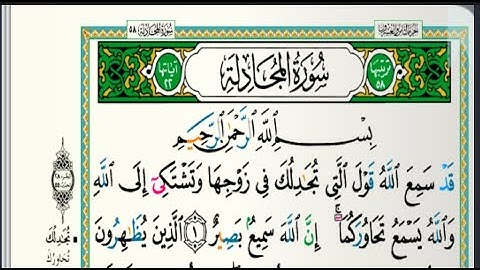 سُورَةُ المُجَادلَةِ ٥٨
الجزء الثامن والعشرون
ترتيبها ٥٨
سُورَةُ المُجَادِلَةِ
آياتها ٢٢
بِسْمِ ٱللَّهِ ٱلرَّحْمَٰنِ ٱلرَّحِيمِ
قَدْ سَمِعَ ٱللَّهُ قَوْلَ ٱلَّتِي تُجَٰدِلُكَ فِي زَوْجِهَا وَتَشْتَكِيٓ إِلَى ٱللَّهِ
وَٱللَّهُ يَسْمَعُ تَحَاوُرَكُمَآ ۚ إِنَّ ٱللَّهَ سَمِيعٌۢ بَصِيرٌ ١ ٱلَّذِينَ يُظَٰهِرُونَ
تُجَٰدِلُكَ
تَحَاوُرَكُمَا